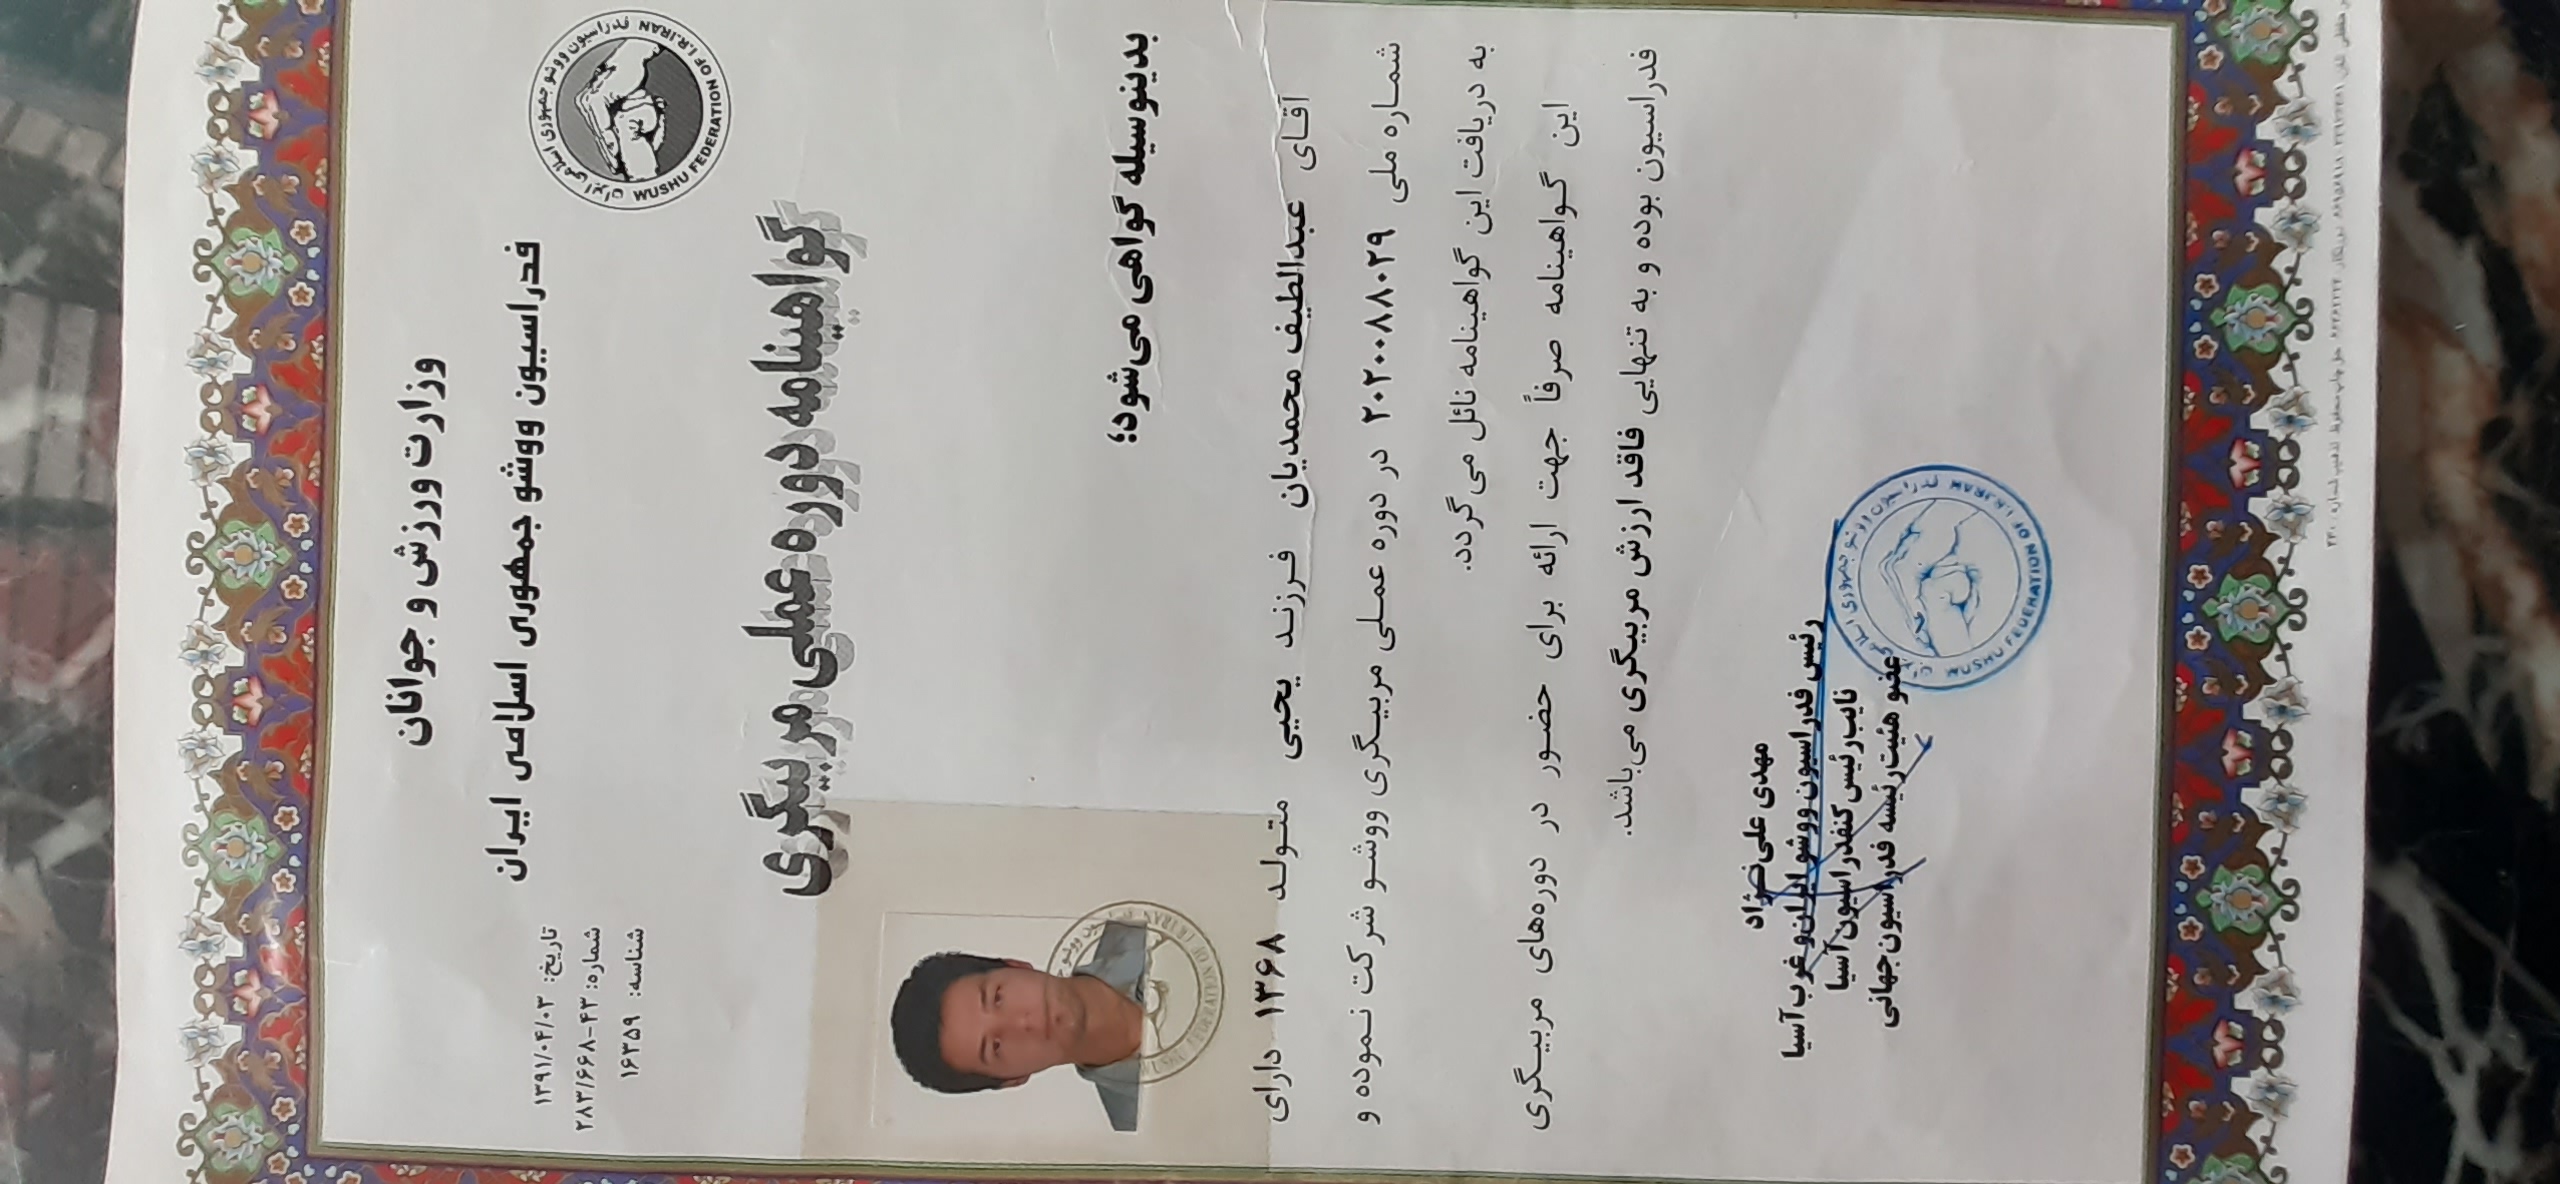 وزارت ورزش و جوانان
فدراسیون ووشو جمهوری اسلامی ایران
فدراسیون ووشو جمهوری اسلامی ایران
WUSHU FEDERATION OF I.R.IRAN
تاریخ: ۱۳۹۱/۰۴/۰۳
شماره: ۲۸۳/۶۶۸-۴۳
شناسه: ۱۶۳۵۹
گواهینامه دوره عملی مربیگری
بدینوسیله گواهی می‌شود؛
آقای عبدالطیف محمدیان فرزند یحیی متولد ۱۳۶۸ دارای
شماره ملی ۲۰۲۰۰۸۸۰۲۹ در دوره عملی مربیگری ووشو شرکت نموده و
به دریافت این گواهینامه نائل می‌گردد.
این گواهینامه صرفاً جهت ارائه برای حضور در دوره‌های مربیگری
فدراسیون بوده و به تنهایی فاقد ارزش مربیگری می‌باشد.
مهدی علی نژاد
رئیس فدراسیون ووشو ایران و غرب آسیا
نایب رئیس کنفدراسیون آسیا
عضو هیئت رئیسه فدراسیون جهانی
فدراسیون ووشو جمهوری اسلامی
WUSHU FEDERATION OF I.R.IRAN